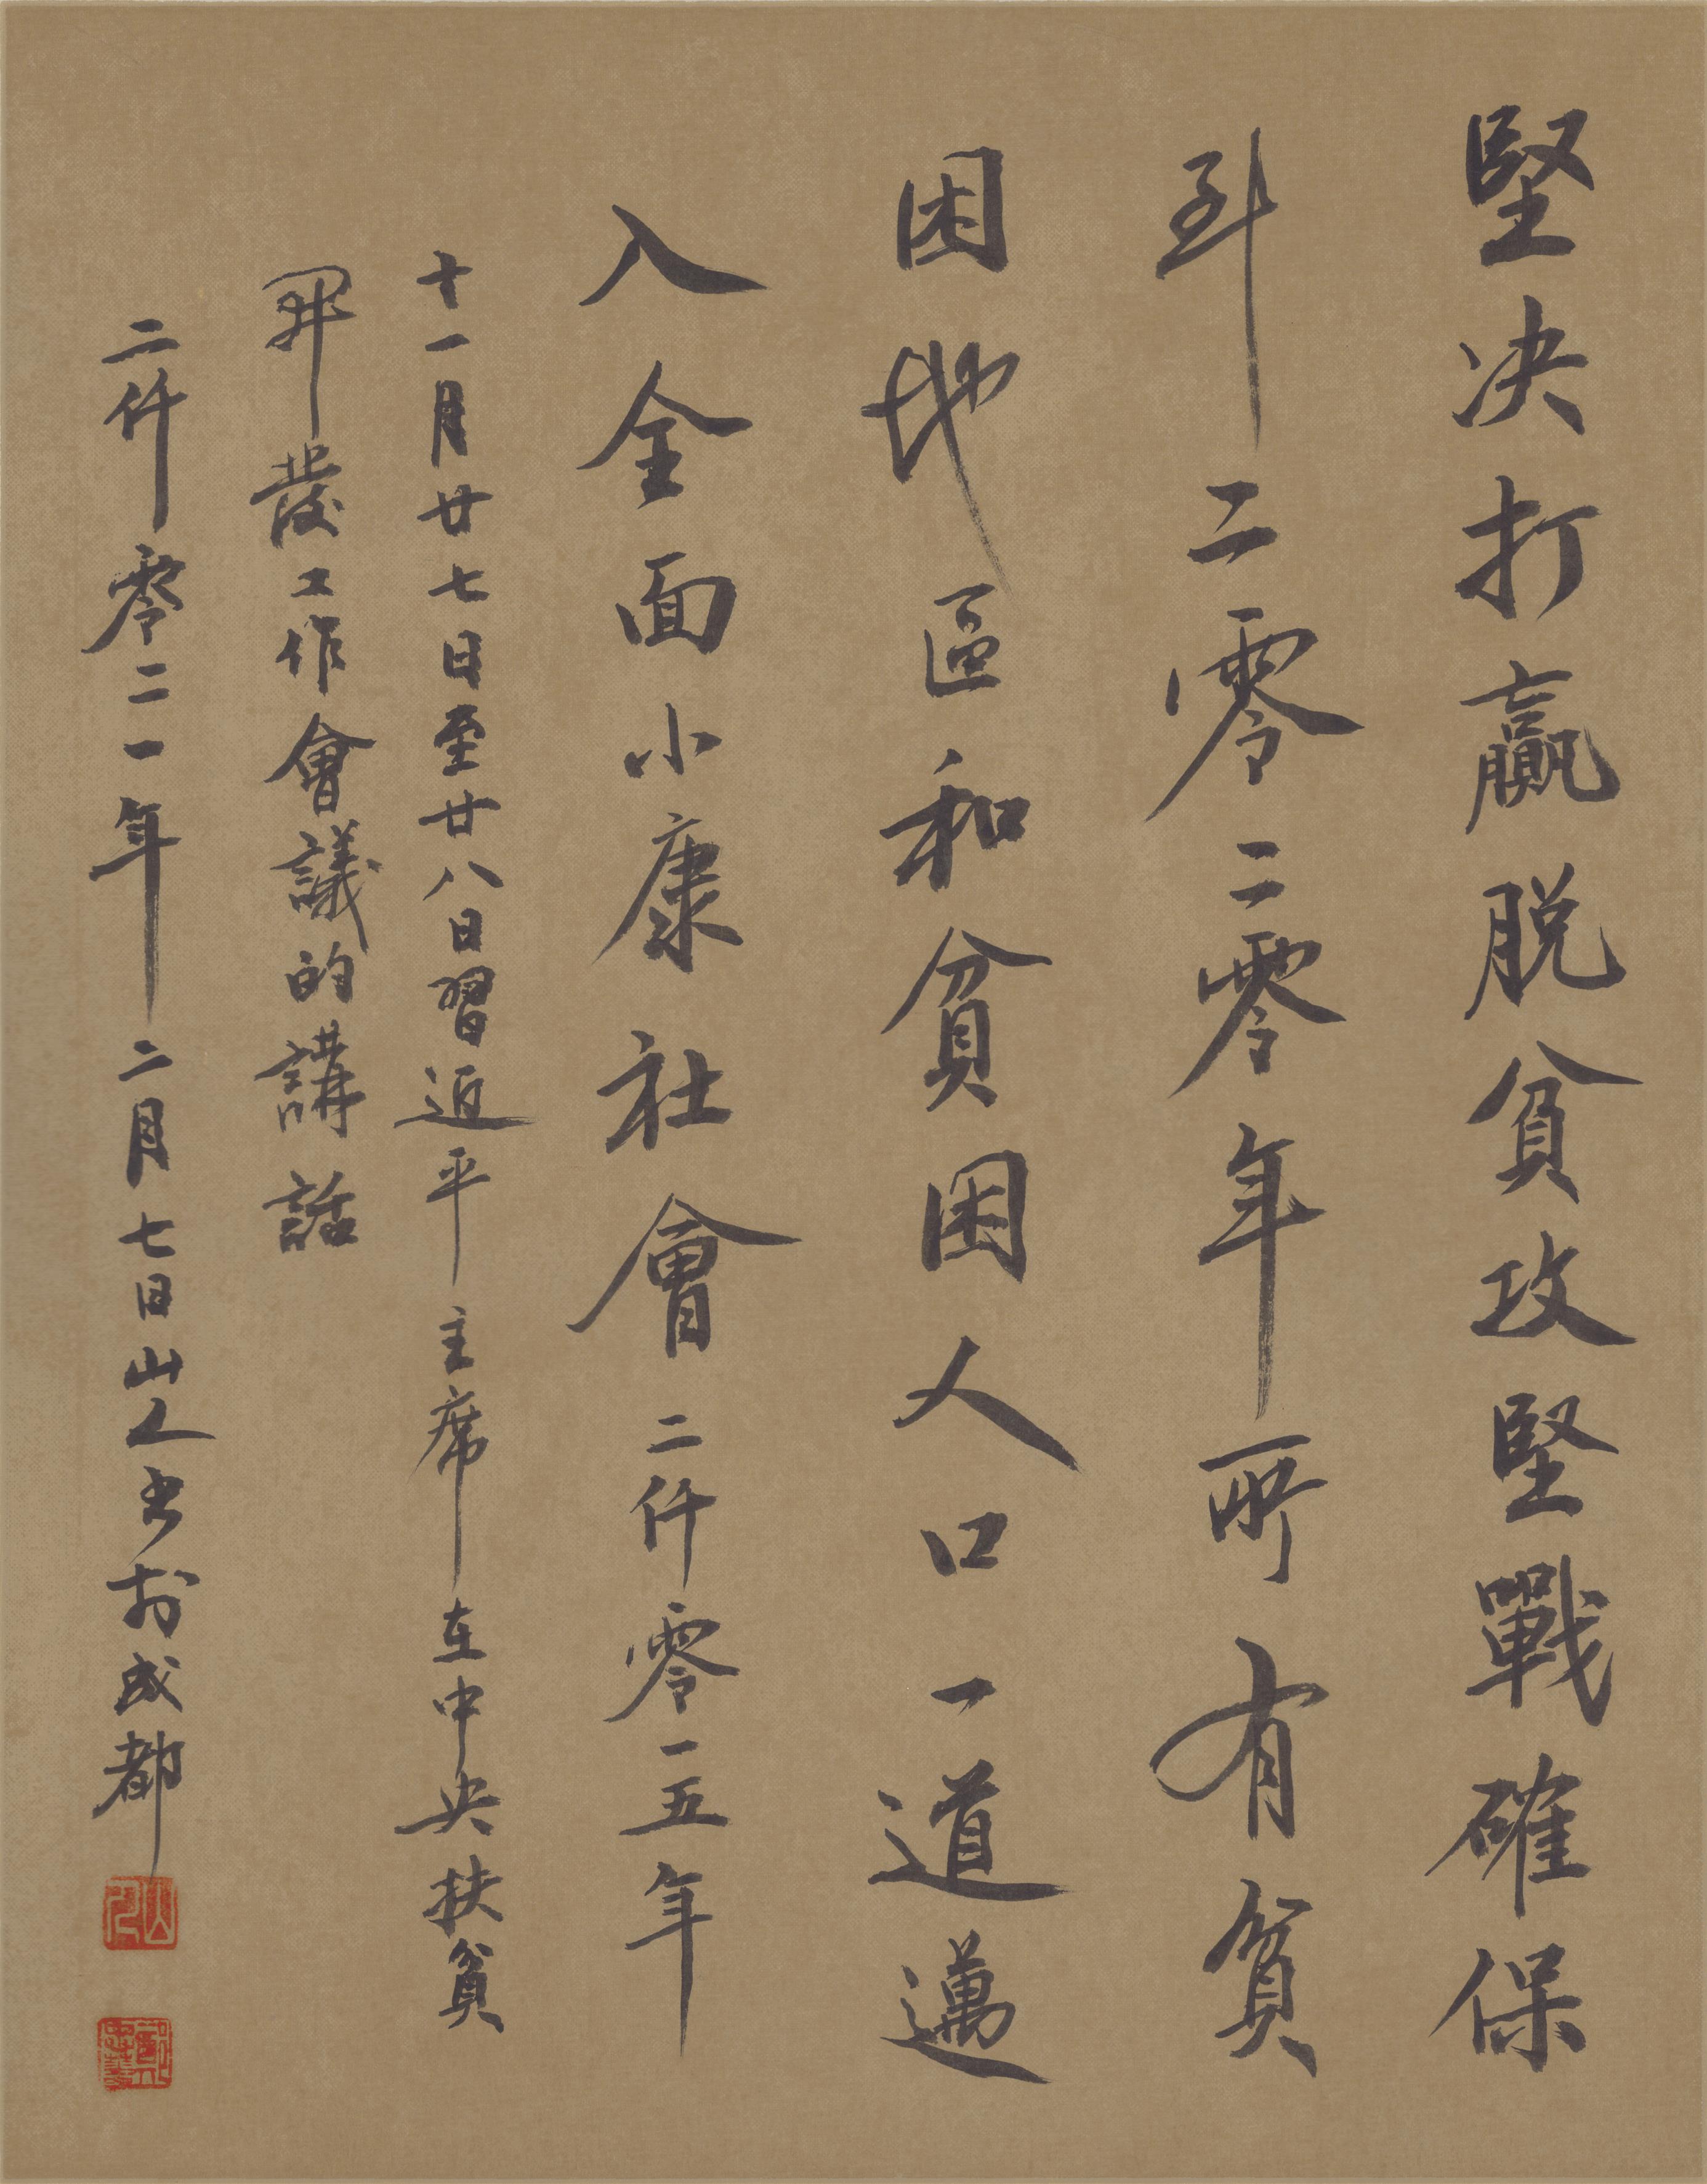 堅決打贏脫貧攻堅戰確保
到二零二零年所有貧
困地區和貧困人口一道邁
入全面小康社會二仟零一五年
十一月廿七日至廿八日習近平主席在中央扶貧
開發工作會議的講話
二仟零二一年二月七日山人書於成都
山人